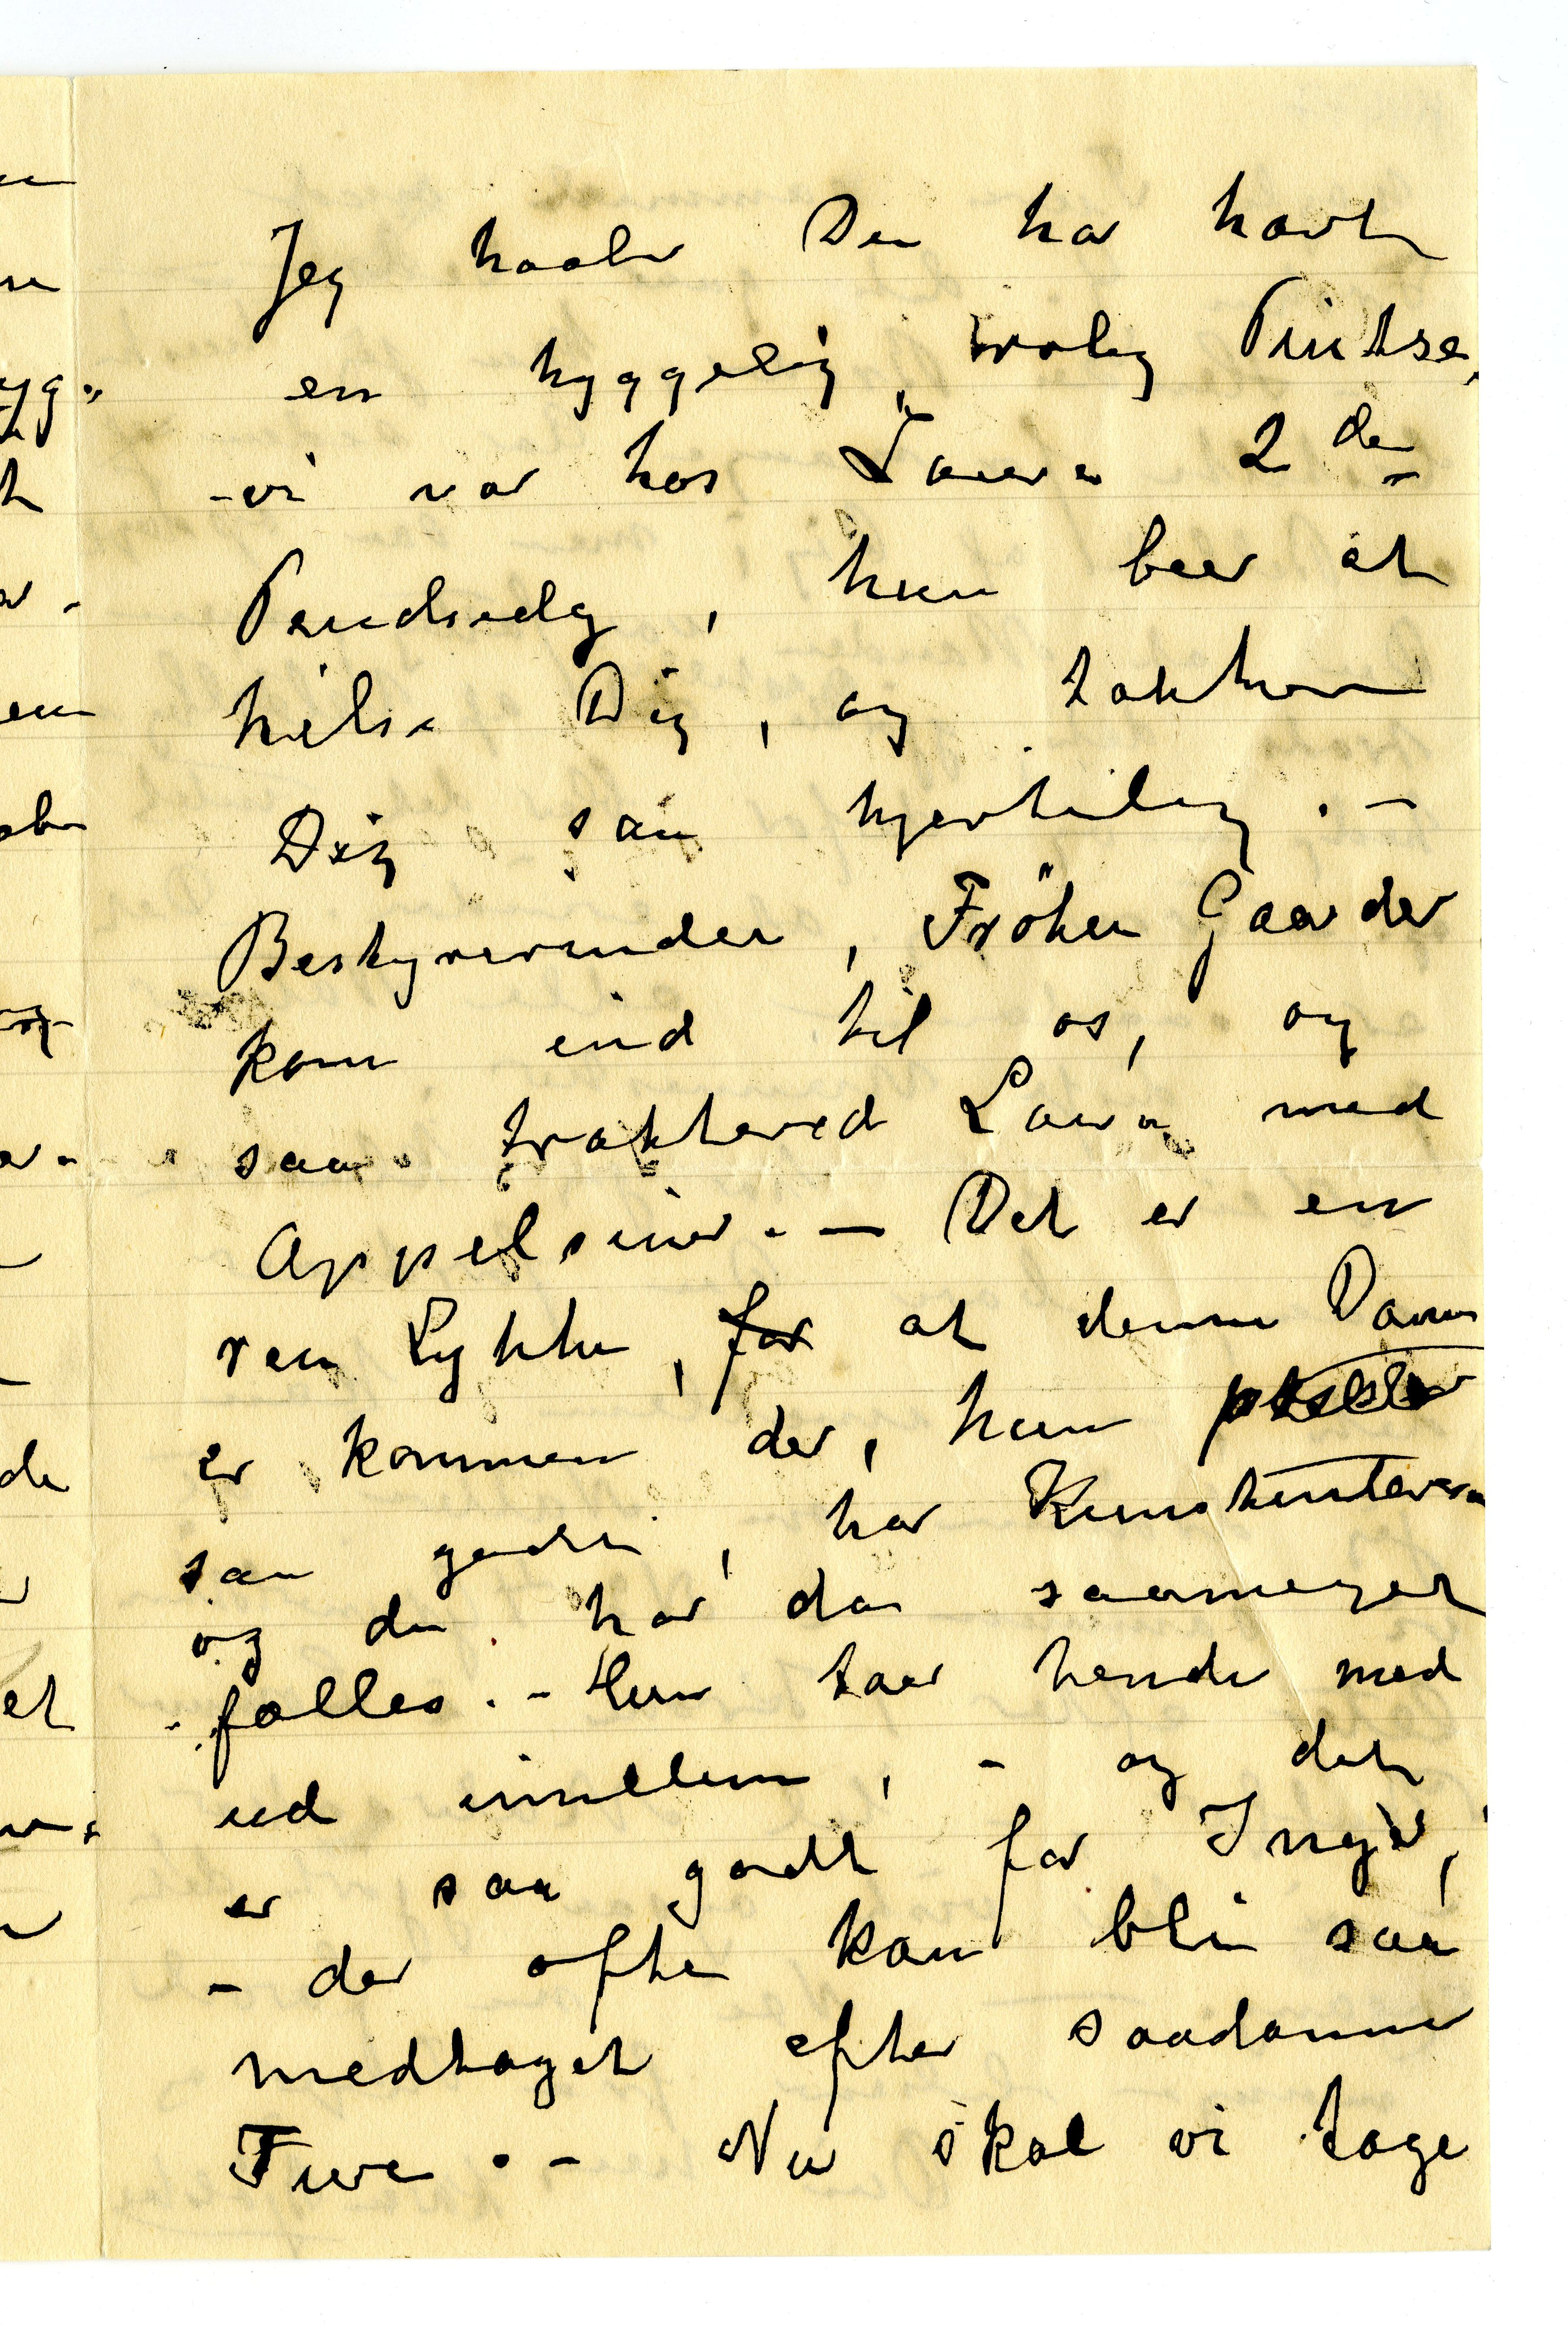 Jeg haaber Du har havt
en hyggelig, rolig Pintse,
- vi var hos Laura 2den
Pindsedag, hun beer at
hilse Dig, og takker
Dig saa hjertelig. -
Bestyrerinden, Fröken Gaarder
kom ind til os, og
saa traktered Laura med
Appelsiner. - Det er en
ren Lykke, for at denne Dame
er kommen der, hun
saa godt, har Kunstinteresse
og de har da saameget
fælles. - Hun taer hende med
ud imellem, - og det
er saa godt for Inger,
- der ofte kan bli saa
medtaget efter saadanne
Ture. - Nu skal vi tage